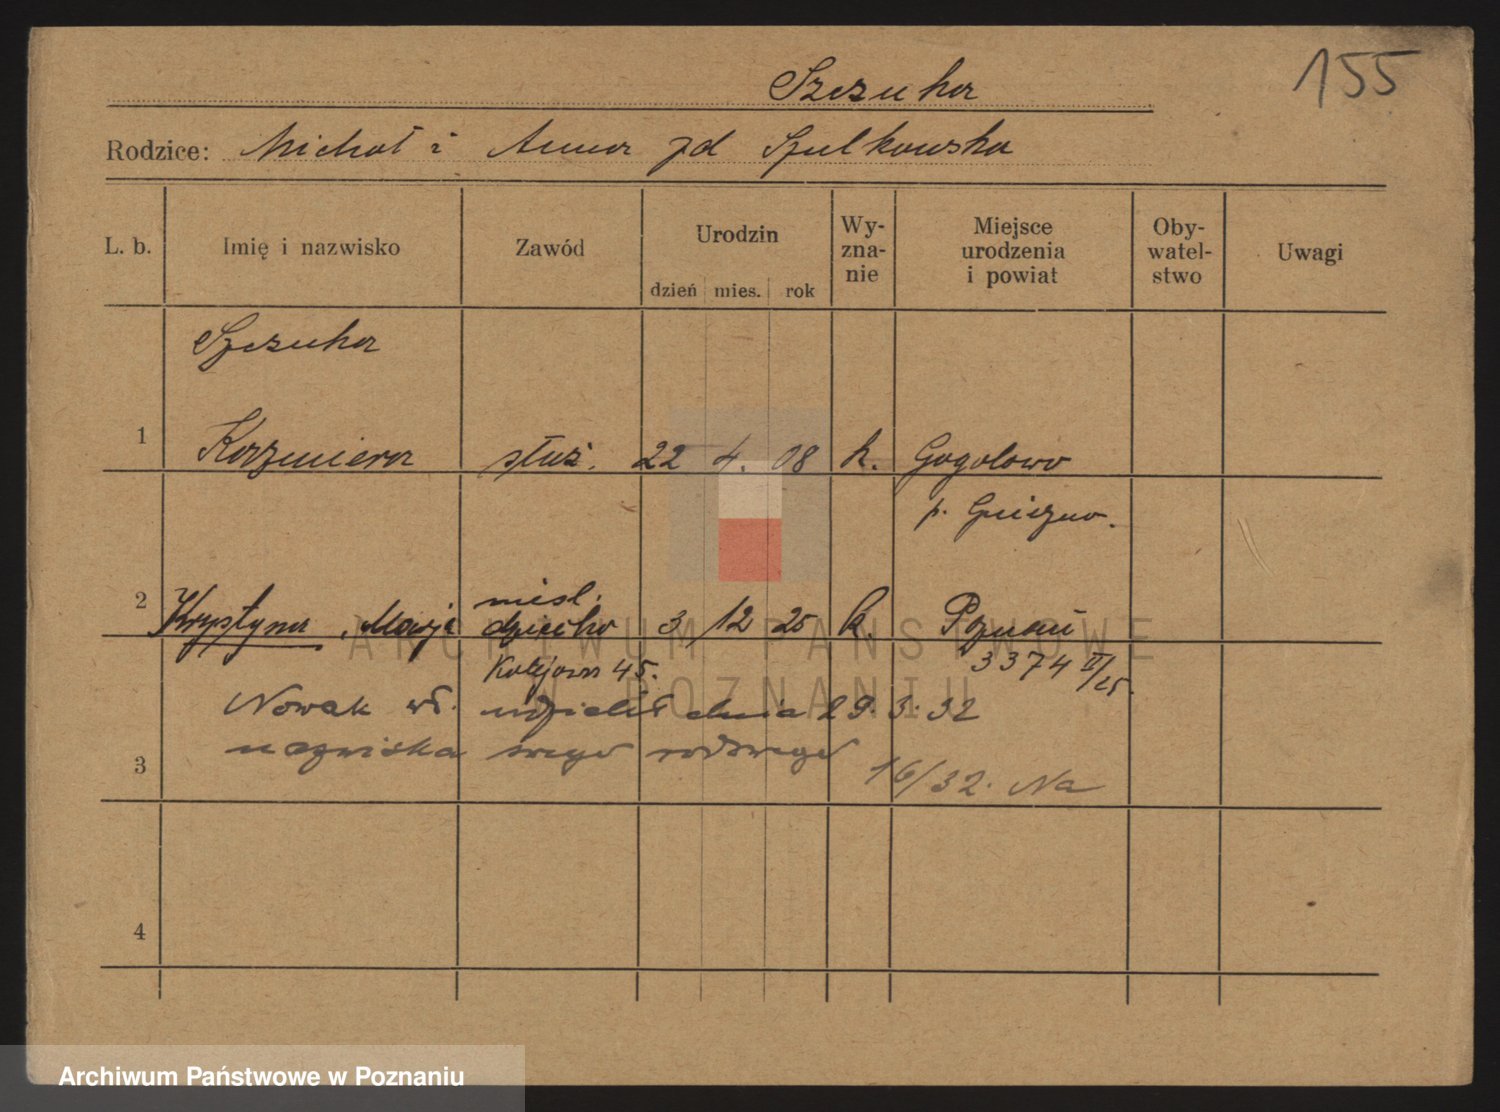 155
Szczuka
Rodzice: Michał i Anna zd Szulkowska
L. b. Imię i nazwisko Zawód Urodzin dzień mies. rok Wy-zna-nie Miejsce urodzenia i powiat Oby-watel-stwo Uwagi
Szczuka
1 Kazimiera służ. 22 4. 08 k. Gogolewo
p. Gniezno.
nieśl.
2 Krystyna Marja dziecko 3 12 25 k. Poznań
Kolejowa 45. 3374 II/25.
Nowak wł. udzielił dnia 29. 3. 32
nazwiska swego rodowego
3 16/32. Na
4
ARCHIWUM PAŃSTWOWE
W POZNANIU
Archiwum Państwowe w Poznaniu